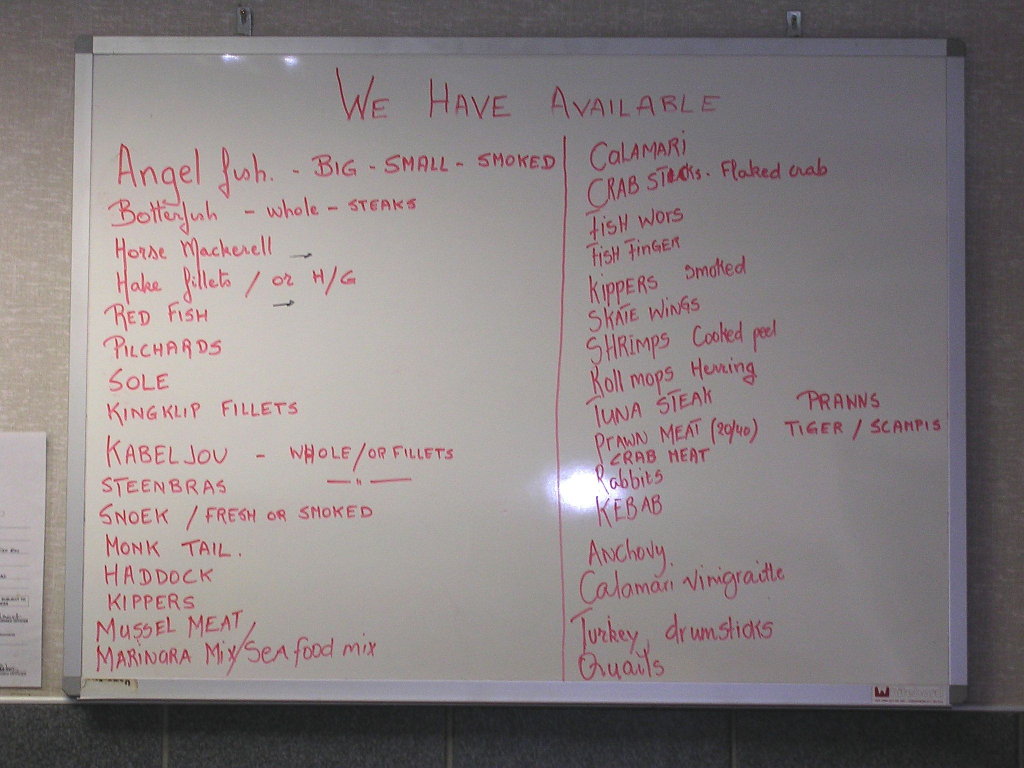 WE HAVE AVAILABLE
Angel fish. - BIG - SMALL - SMOKED
Botterfish - whole - STEAKS
Horse Mackerell
Hake fillets / or H/G
RED FISH
PILCHARDS
SOLE
KINGKLIP FILLETS
KABELJOU - WHOLE/OR FILLETS
STEENBRAS —"—
SNOEK / FRESH OR SMOKED
MONK TAIL.
HADDOCK
KIPPERS
MUSSEL MEAT
MARINARA Mix/Seafood mix
CALAMARI
CRAB STICKS. Flaked crab
FISH WORS
FISH FINGER
KIPPERS Smoked
SKATE WINGS
SHRIMPS Cooked peel
Roll mops Herring
TUNA STEAK PRAWNS
PRAWN MEAT (20/40) TIGER / SCAMPIS
CRAB MEAT
Rabbits
KEBAB
ANCHOVY.
Calamari Vinigraitte
Turkey drumsticks
Quails